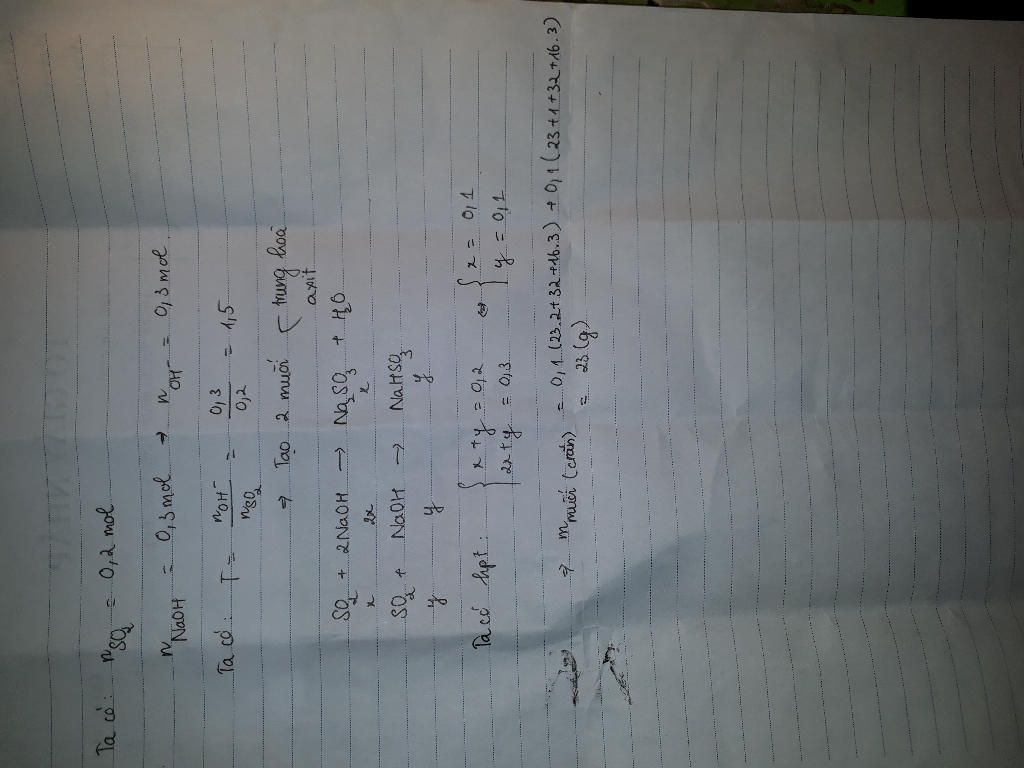 Ta có: n SO₂ = 0,2 mol
n NaOH = 0,3 mol → n OH⁻ = 0,3 mol
Ta có: T = nOH⁻ / nSO₂ = 0,3 / 0,2 = 1,5
⇒ Tạo 2 muối { trung hoà
axit
SO₂ + 2NaOH → Na₂SO₃ + H₂O
x 2x x
SO₂ + NaOH → NaHSO₃
y y y
Ta có hpt: { x + y = 0,2 ⇔ { x = 0,1
2x + y = 0,3 y = 0,1
⇒ m muối (crắn) = 0,1 (23.2+32+16.3) + 0,1 (23+1+32+16.3)
= 23 (g)